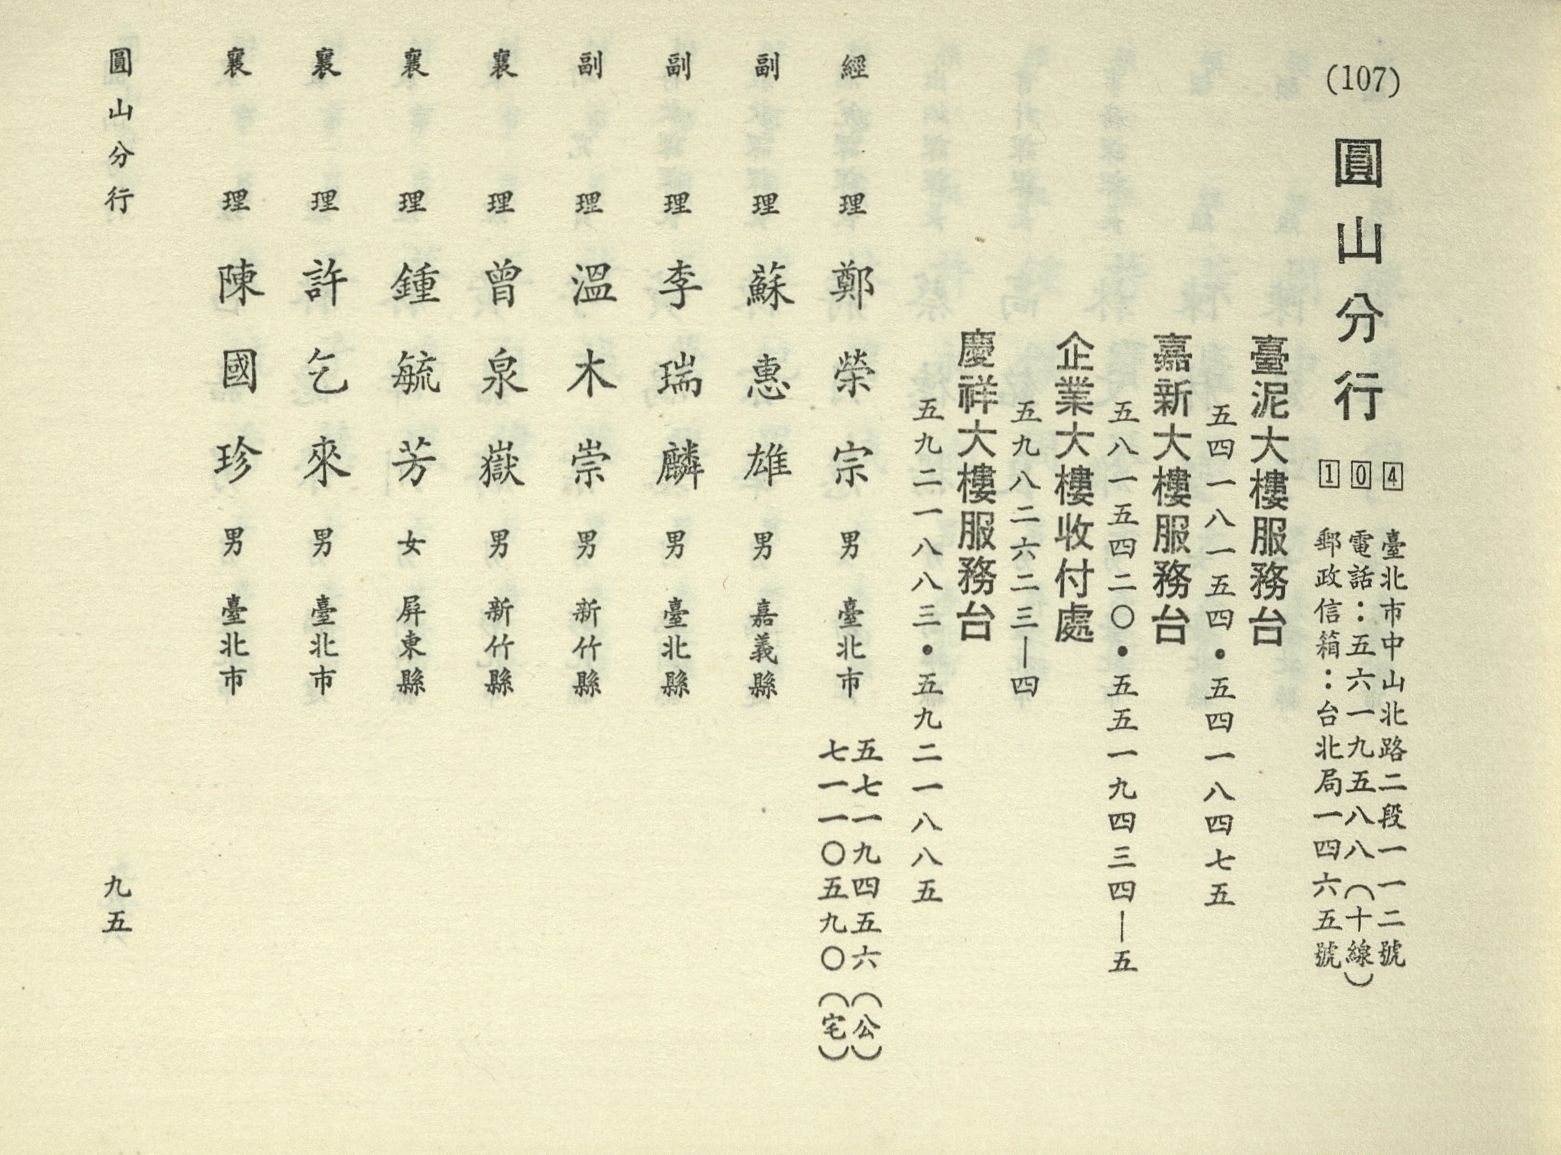 (107)
圓山分行
４０１
臺北市中山北路二段一一二號
電話：五六一九五八八（十線）
郵政信箱：台北局一四六五號
臺泥大樓服務台
五四一八一五四•五四一八四七五
嘉新大樓服務台
五八一五四二〇•五五一九四三四—五
企業大樓收付處
五九八二六二三—四
慶祥大樓服務台
五九二一八八三•五九二一八八五
經理 鄭榮宗 男 臺北市 五七一九四五六（公）
七一一〇五九〇（宅）
副理 蘇惠雄 男 嘉義縣
副理 李瑞麟 男 臺北縣
副理 溫木崇 男 新竹縣
襄理 曾泉嶽 男 新竹縣
襄理 鍾毓芳 女 屏東縣
襄理 許乞來 男 臺北市
襄理 陳國珍 男 臺北市
圓山分行
九五